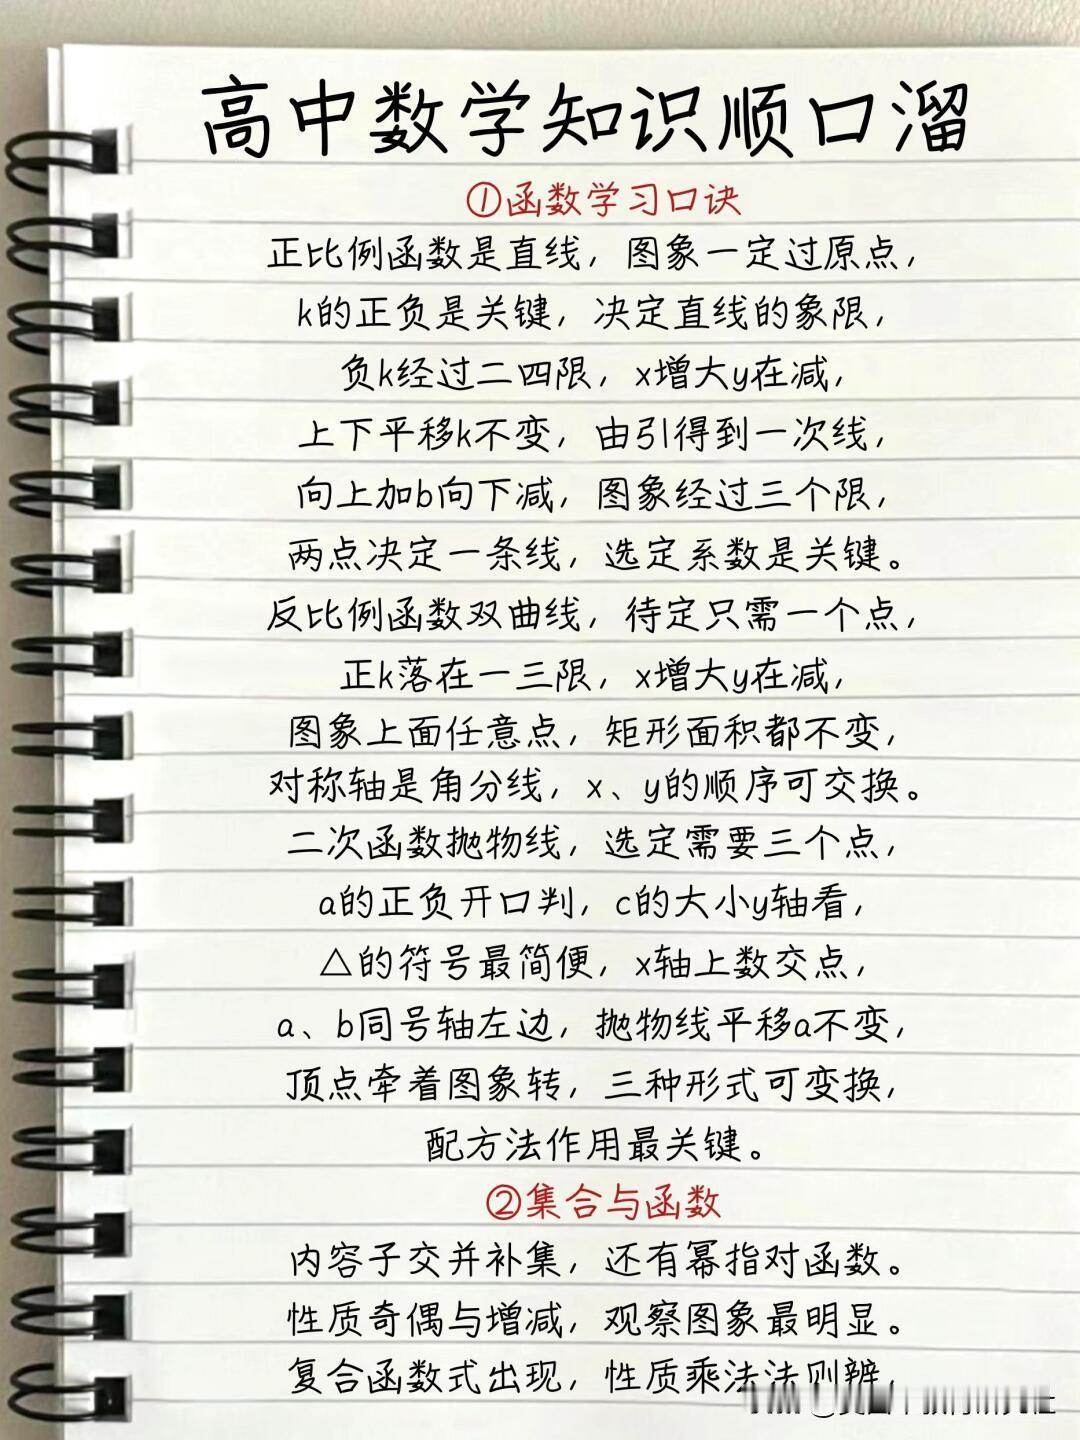 高中数学知识顺口溜
①函数学习口诀
正比例函数是直线，图象一定过原点，
k的正负是关键，决定直线的象限，
负k经过二四限，x增大y在减，
上下平移k不变，由引得到一次线，
向上加b向下减，图象经过三个限，
两点决定一条线，选定系数是关键。
反比例函数双曲线，待定只需一个点，
正k落在一三限，x增大y在减，
图象上面任意点，矩形面积都不变，
对称轴是角分线，x、y的顺序可交换。
二次函数抛物线，选定需要三个点，
a的正负开口判，c的大小y轴看，
△的符号最简便，x轴上数交点，
a、b同号轴左边，抛物线平移a不变，
顶点牵着图象转，三种形式可变换，
配方法作用最关键。
②集合与函数
内容子交并补集，还有幂指对函数。
性质奇偶与增减，观察图象最明显。
复合函数式出现，性质乘法法则辨，